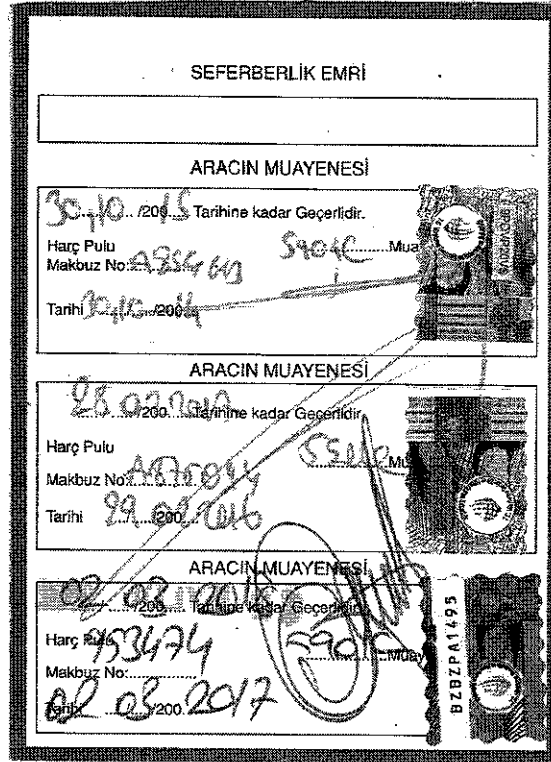 SEFERBERLİK EMRİ
ARACIN MUAYENESİ
30.10./200 15 Tarihine kadar Geçerlidir.
Harç Pulu
Makbuz No: Mua
Tarihi 30.10./200 14
ARACIN MUAYENESİ
28.02/200 2017 Tarihine kadar Geçerlidir.
Harç Pulu
Makbuz No: A876844 Mu
Tarihi 29.02/200 2016
ARACIN MUAYENESİ
02 03 /200 Tarihine kadar Geçerlidir.
Harç Pulu 453474 Muay
Makbuz No:
Tarihi 02 03/200 2017
BZBZPA1495